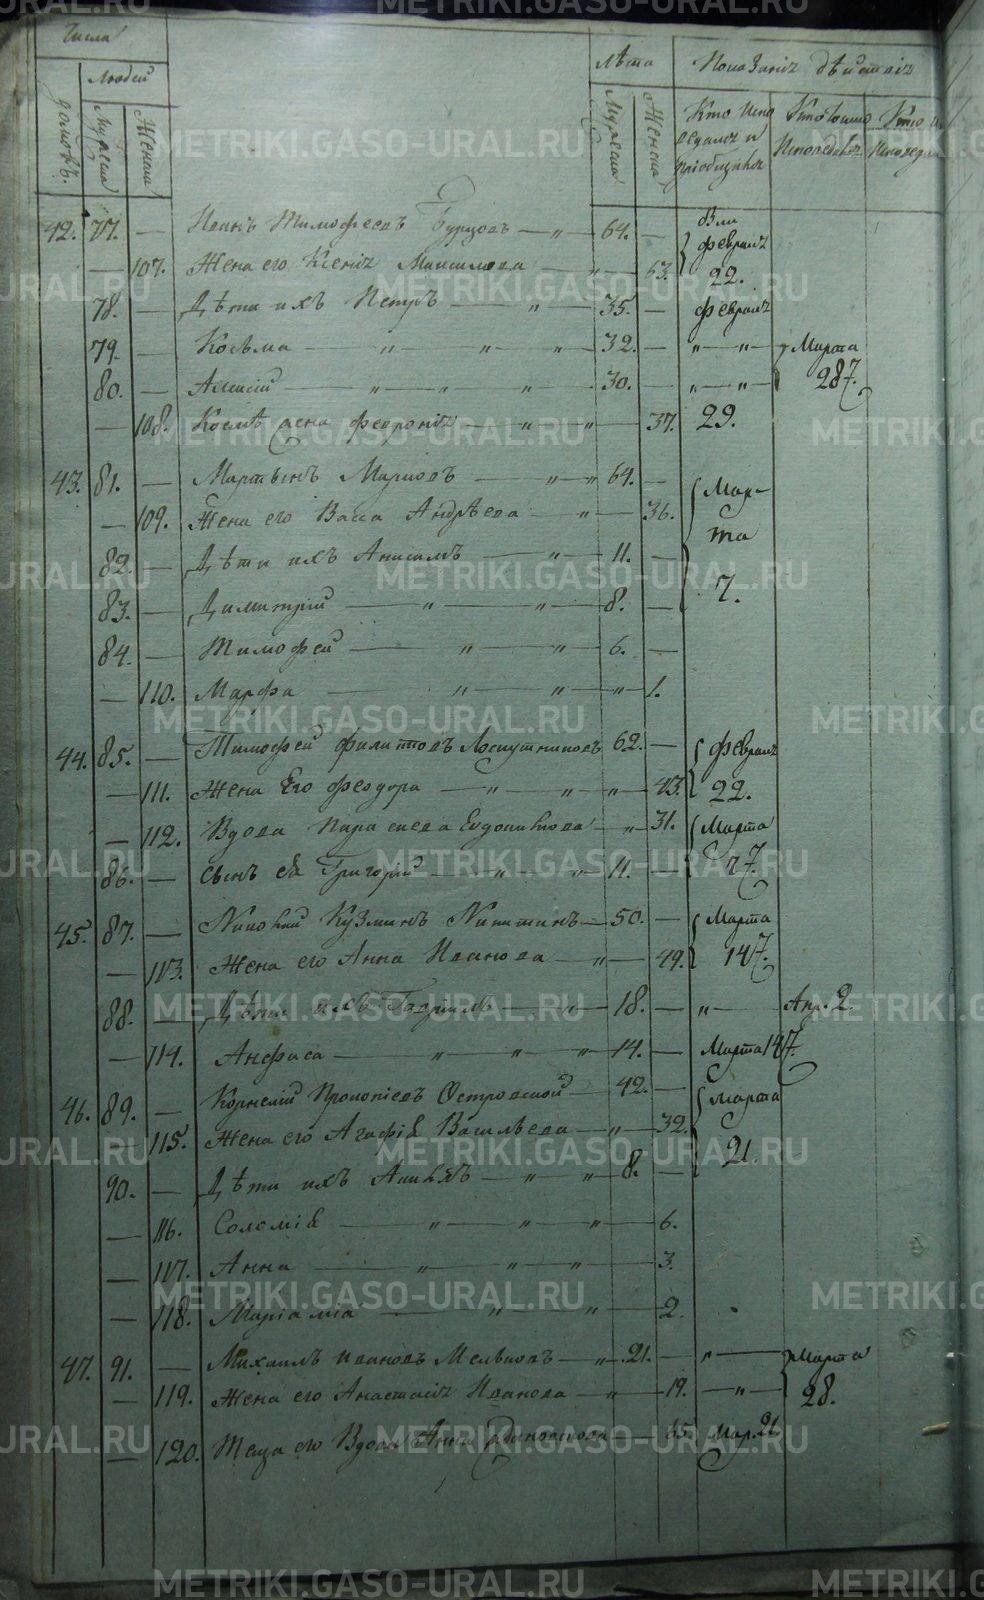 Числа
Людей
домовъ.
Мужеска
Женска
Лѣта
Мужеска
Женска
Показаніе дѣйствія
Кто Испо
ведался и
пріобщался
Исповедался
42. 77. — Иванъ Тимофеевъ Бурцовъ — „ — 64. —
февраля
— 107. Жена его Ксенія Максимова — „ — 63. 22.
78. — Дѣти ихъ Петръ — „ — 35. — февраля
79. — Косьма — „ — „ — „ — 32. — „ — „ — Марта
80. — Алексій — „ — „ — „ — 30. — „ — „ 28
— 108. Космѣ жена Февронія — „ — „ — 37. 29.
43. 81. — Мартынъ Марковъ — „ — „ 64. —
Мар-
— 109. Жена его Васса Андрѣева — „ — 36.
та
82. — Дѣти ихъ Анисимъ — „ — 11. —
7.
83. — Димитрій — „ — „ — 8. —
84. — Тимофей — „ — „ — 6. —
— 110. Марфа — „ — „ — „ — 1.
44. 85. — Тимофей Филиповъ Лоскутниковъ 62. — февраля
— 111. Жена Его Феодора — „ — „ — „ — 43. 22.
— 112. Вдова Параскева Евдокимова — „ — 31. Марта
86. — сынъ еѣ Григорій — „ — „ 11. — 7.
45. 87. — Кузминъ Никитинъ — 50. — Марта
— 113. Жена его Анна Иванова — „ — 49. 14
88. — Дѣти ихъ Гаврилъ — „ — 18. — „ — Апр. 2
— 114. Анфиса — „ — „ — „ 14. — Марта 14
46. 89. — Корнелій Прокопіевъ Островской — 42. — Марта
— 115. Жена его Агафія Васильева — „ — 32.
21.
90. — Дѣти ихъ — „ — „ 8. —
— 116. Соломія — „ — „ — „ — 6.
— 117. Анна — „ — „ — „ — 3.
— 118. Маріамія — „ — „ — 2.
47. 91. — Михаилъ Ивановъ Мельковъ — „ — 21. — „ — Марта
— 119. Жена его Анастасія Иванова — „ — 19. — „ — 28.
— 120. Теща его Вдова Анна — 65. Мар. 21.
METRIKI.GASO-URAL.RU